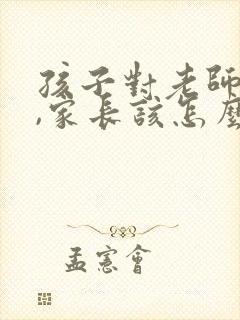 孩子對老師
,家長該怎麼
孟憲會